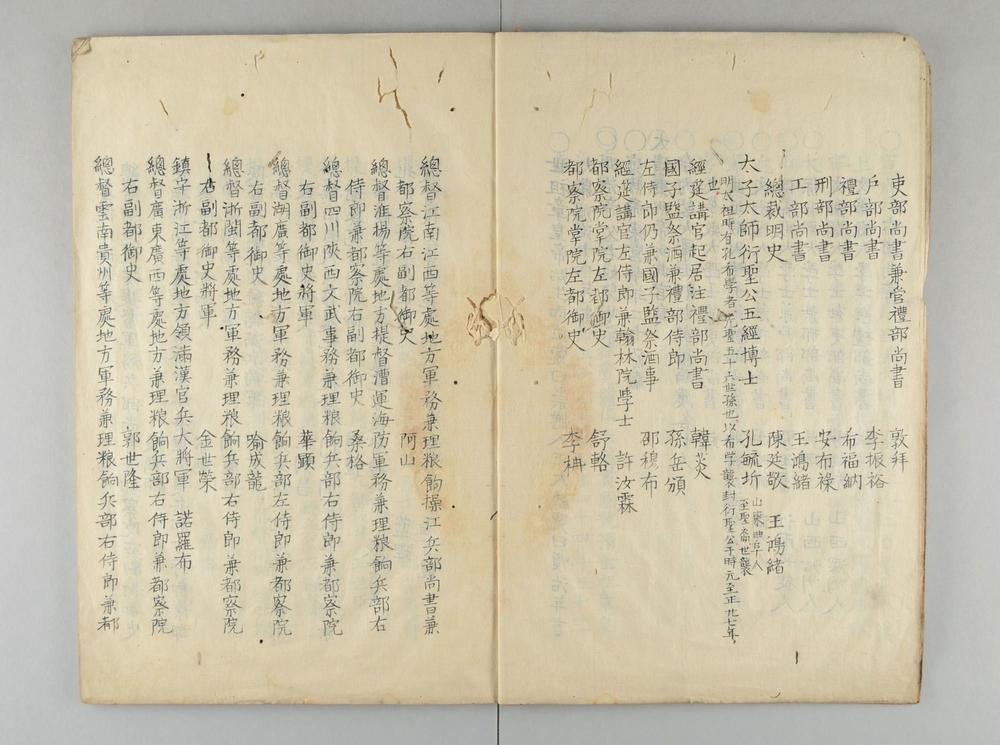 吏部尚書兼管禮部尚書 敦拜
戶部尚書 李振裕
禮部尚書 布福納
刑部尚書 安布祿
工部尚書 王鴻緒
總裁明史 陳廷敬 王鴻緒
太子太師衍聖公五經博士 孔毓圻 山東曲阜人 至聖裔世襲
明太祖時有孔希學者先聖五十六世孫也以希学襲封衍聖公于時元至正廿七年
也
經莚講官起居注禮部尚書 韓菼
國子監祭酒兼禮部侍郎 孫岳頒
左侍郎仍兼國子監祭酒事 邵穆布
經莚講官左侍郎兼翰林院學士 許汝霖
都察院掌院左都御史 舒輅
都察院掌院左都御史 李柟
總督江南江西等處地方軍務兼理粮餉操江兵部尚書兼
都察院右副都御史 阿山
總督淮揚等處地方提督漕運海防軍務兼理粮餉兵部右
侍郎兼都察院右副都御史 桑格
總督四川陝西文武事務兼理粮餉兵部右侍郎兼都察院
右副都御史將軍 華顯
總督湖廣等處地方軍務兼理粮餉兵部左侍郎兼都察院
右副都御史 喻成龍
總督浙閩等處地方軍務兼理粮餉兵部右侍郎兼都察院
右副都御史將軍 金世榮
鎮守浙江等處地方領滿漢官兵大將軍 諾羅布
總督廣東廣西等處地方軍務兼理粮餉兵部右侍郎兼都察院
右副都御史 郭世隆
總督雲南貴州等處地方軍務兼理粮餉兵部右侍郎兼都